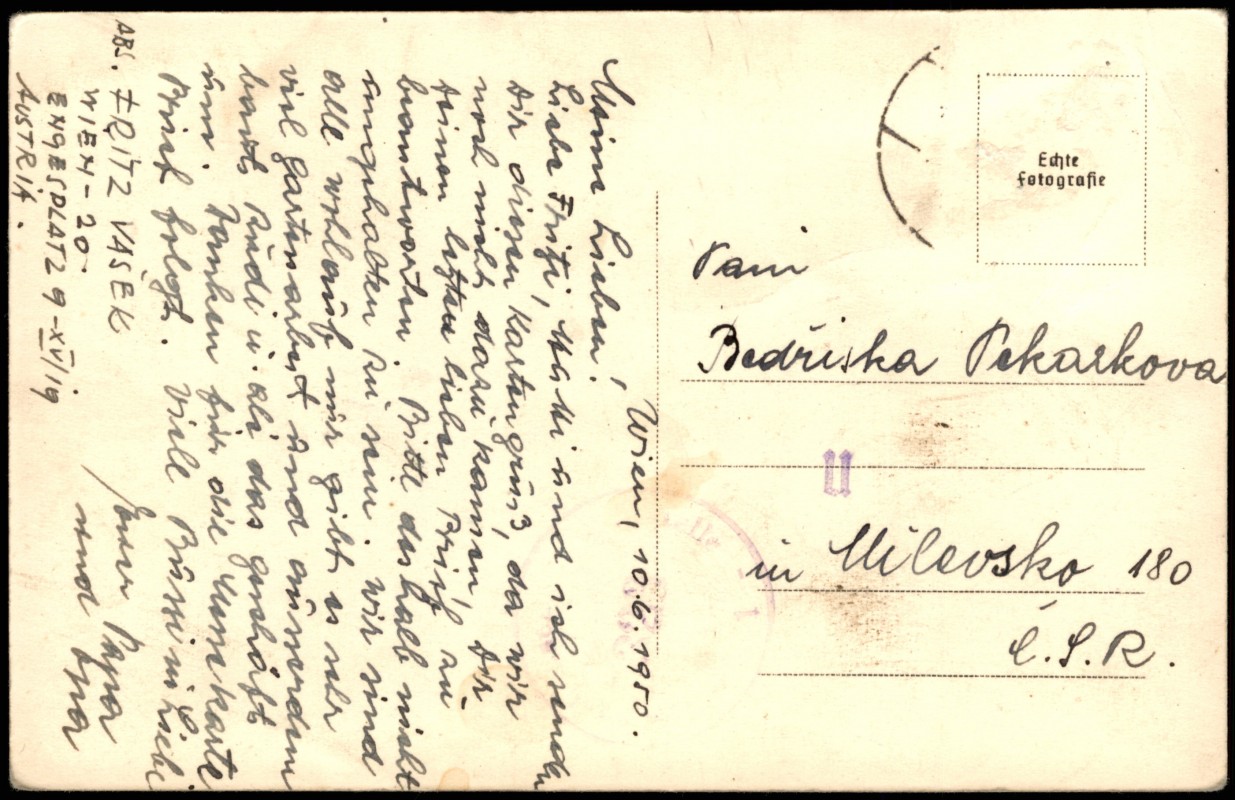 Wien, 10.6.1950.
Meine Lieben!
Liebe Fritzi, Mutti und ich senden
Dir diesen Kartengruß, da wir
noch nicht dazu kamen, Dir
Deinen letzten lieben Brief zu
beantworten. Bitte deshalb nicht
ungehalten zu sein. Wir sind
alle wohlauf nur gibt es sehr
viel Gartenarbeit und außerdem
bauts Rudi u. das Geschäft
um. Danken für die Karte
Brief folgt. Viele Bussi in Liebe
Euer Papa
und Opa
ABS. FRITZ VAŠEK
WIEN-20.
ENGELSPLATZ 9-XVI/19
AUSTRIA.
Echte
Fotografie
Paní
Bedřiska Pekarkova
U
in Milevsko 180
Č.S.R.